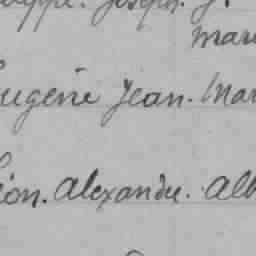 Joseph. J.
mar
Eugène Jean. Mar
Léon. Alexandre. Alb